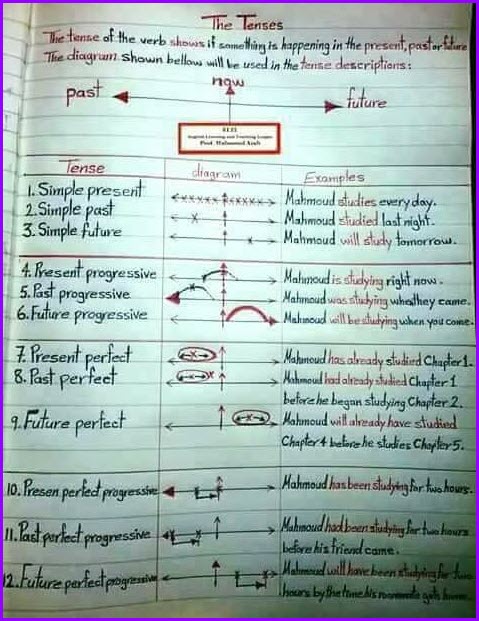 The Tenses
The tense of the verb shows if something is happening in the present, past or future
The diagram shown bellow will be used in the tense descriptions:
now
past
future
ELTL
English Learning and Teaching League
Prof. Mahmoud Arab
Tense diagram Examples
1. Simple present Mahmoud studies every day.
2. Simple past Mahmoud studied last night.
3. Simple future Mahmoud will study tomorrow.
4. Present progressive Mahmoud is studying right now.
5. Past progressive Mahmoud was studying when they came.
6. Future progressive Mahmoud will be studying when you come.
7. Present perfect Mahmoud has already studied Chapter 1.
8. Past perfect Mahmoud had already studied Chapter 1
before he began studying Chapter 2.
9. Future perfect Mahmoud will already have studied
Chapter 4 before he studies Chapter 5.
10. Presen perfect progressive Mahmoud has been studying for two hours.
11. Past perfect progressive Mahmoud had been studying for two hours
before his friend came.
12. Future perfect progressive Mahmoud will have been studying for two
hours by the time his roommate gets home.